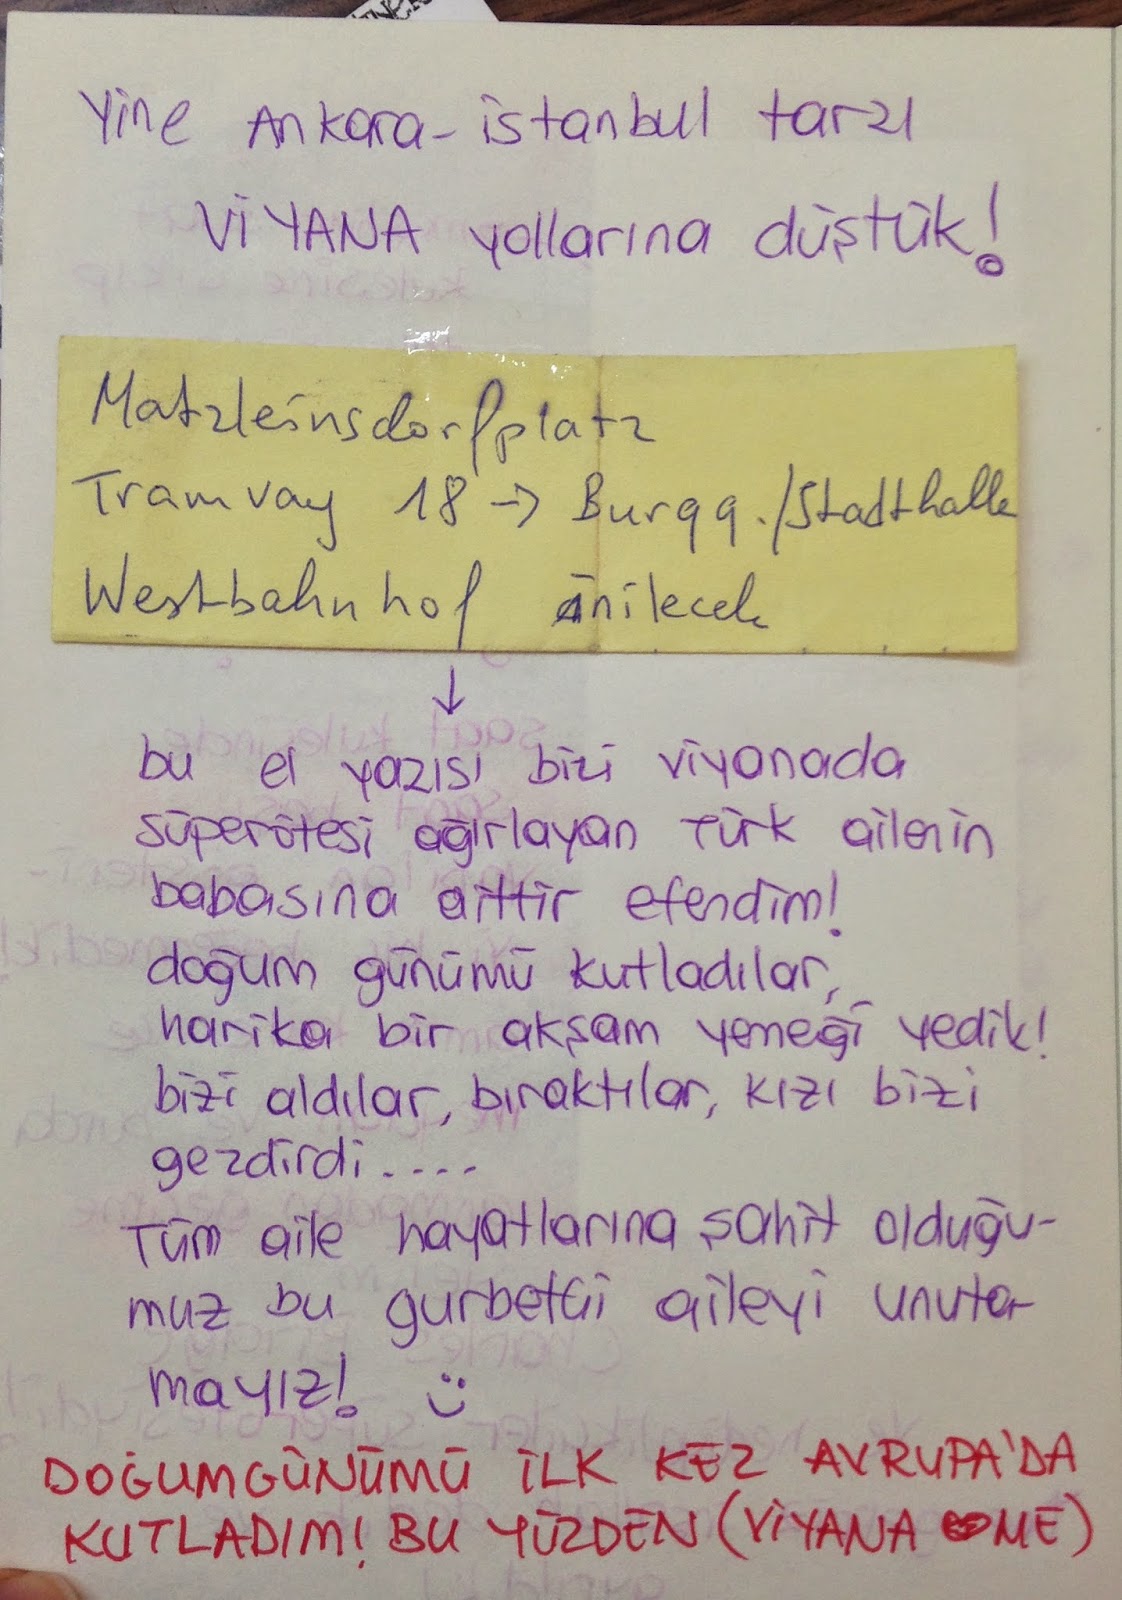 Yine Ankara-istanbul tarzı
VİYANA yollarına düştük!
Matzleinsdorfplatz
Tramvay 18 -> Burgg./Stadthalle
Westbahnhof inilecek
↓
bu el yazısı bizi viyanada
süperötesi ağırlayan Türk ailenin
babasına aittir efendim!
doğum günümü kutladılar,
harika bir akşam yemeği yedik!
bizi aldılar, bıraktılar, kızı bizi
gezdirdi....
Tüm aile hayatlarına şahit olduğu-
muz bu gurbetçi aileyi unuta-
mayız! :)
DOĞUMGÜNÜMÜ İLK KEZ AVRUPA'DA
KUTLADIM! BU YÜZDEN (VİYANA ME)